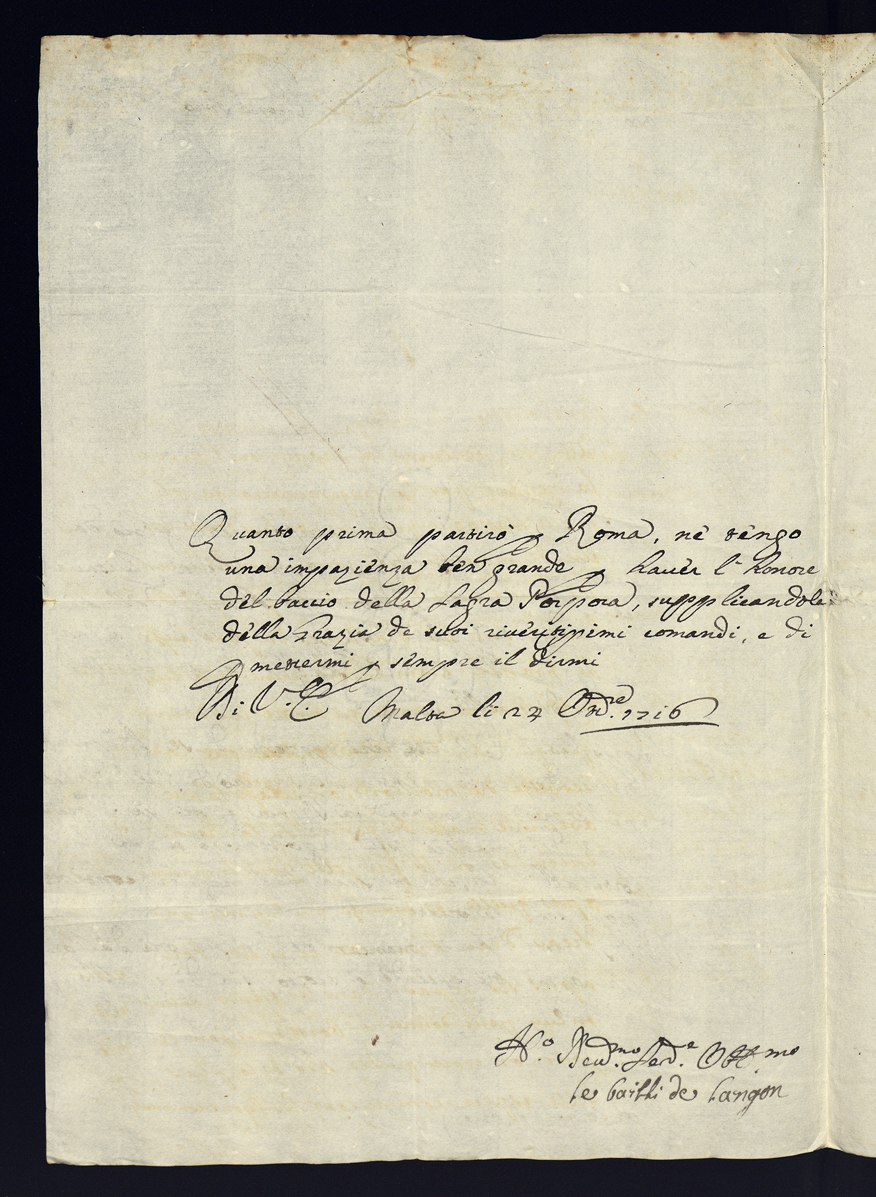 Quanto prima partirò p Roma, né tengo
una impazienza ben grande p haver l'honore
del baccio della Sagra Porpora, supplicandola
della Grazia de suoi riveritissimi comandi, e di
p mettermi p sempre il dirmi
Di V. E. Malta li 24 Ott.re 1716
H.o Devd.mo Serd.e Obb.mo
le bailli de Langon